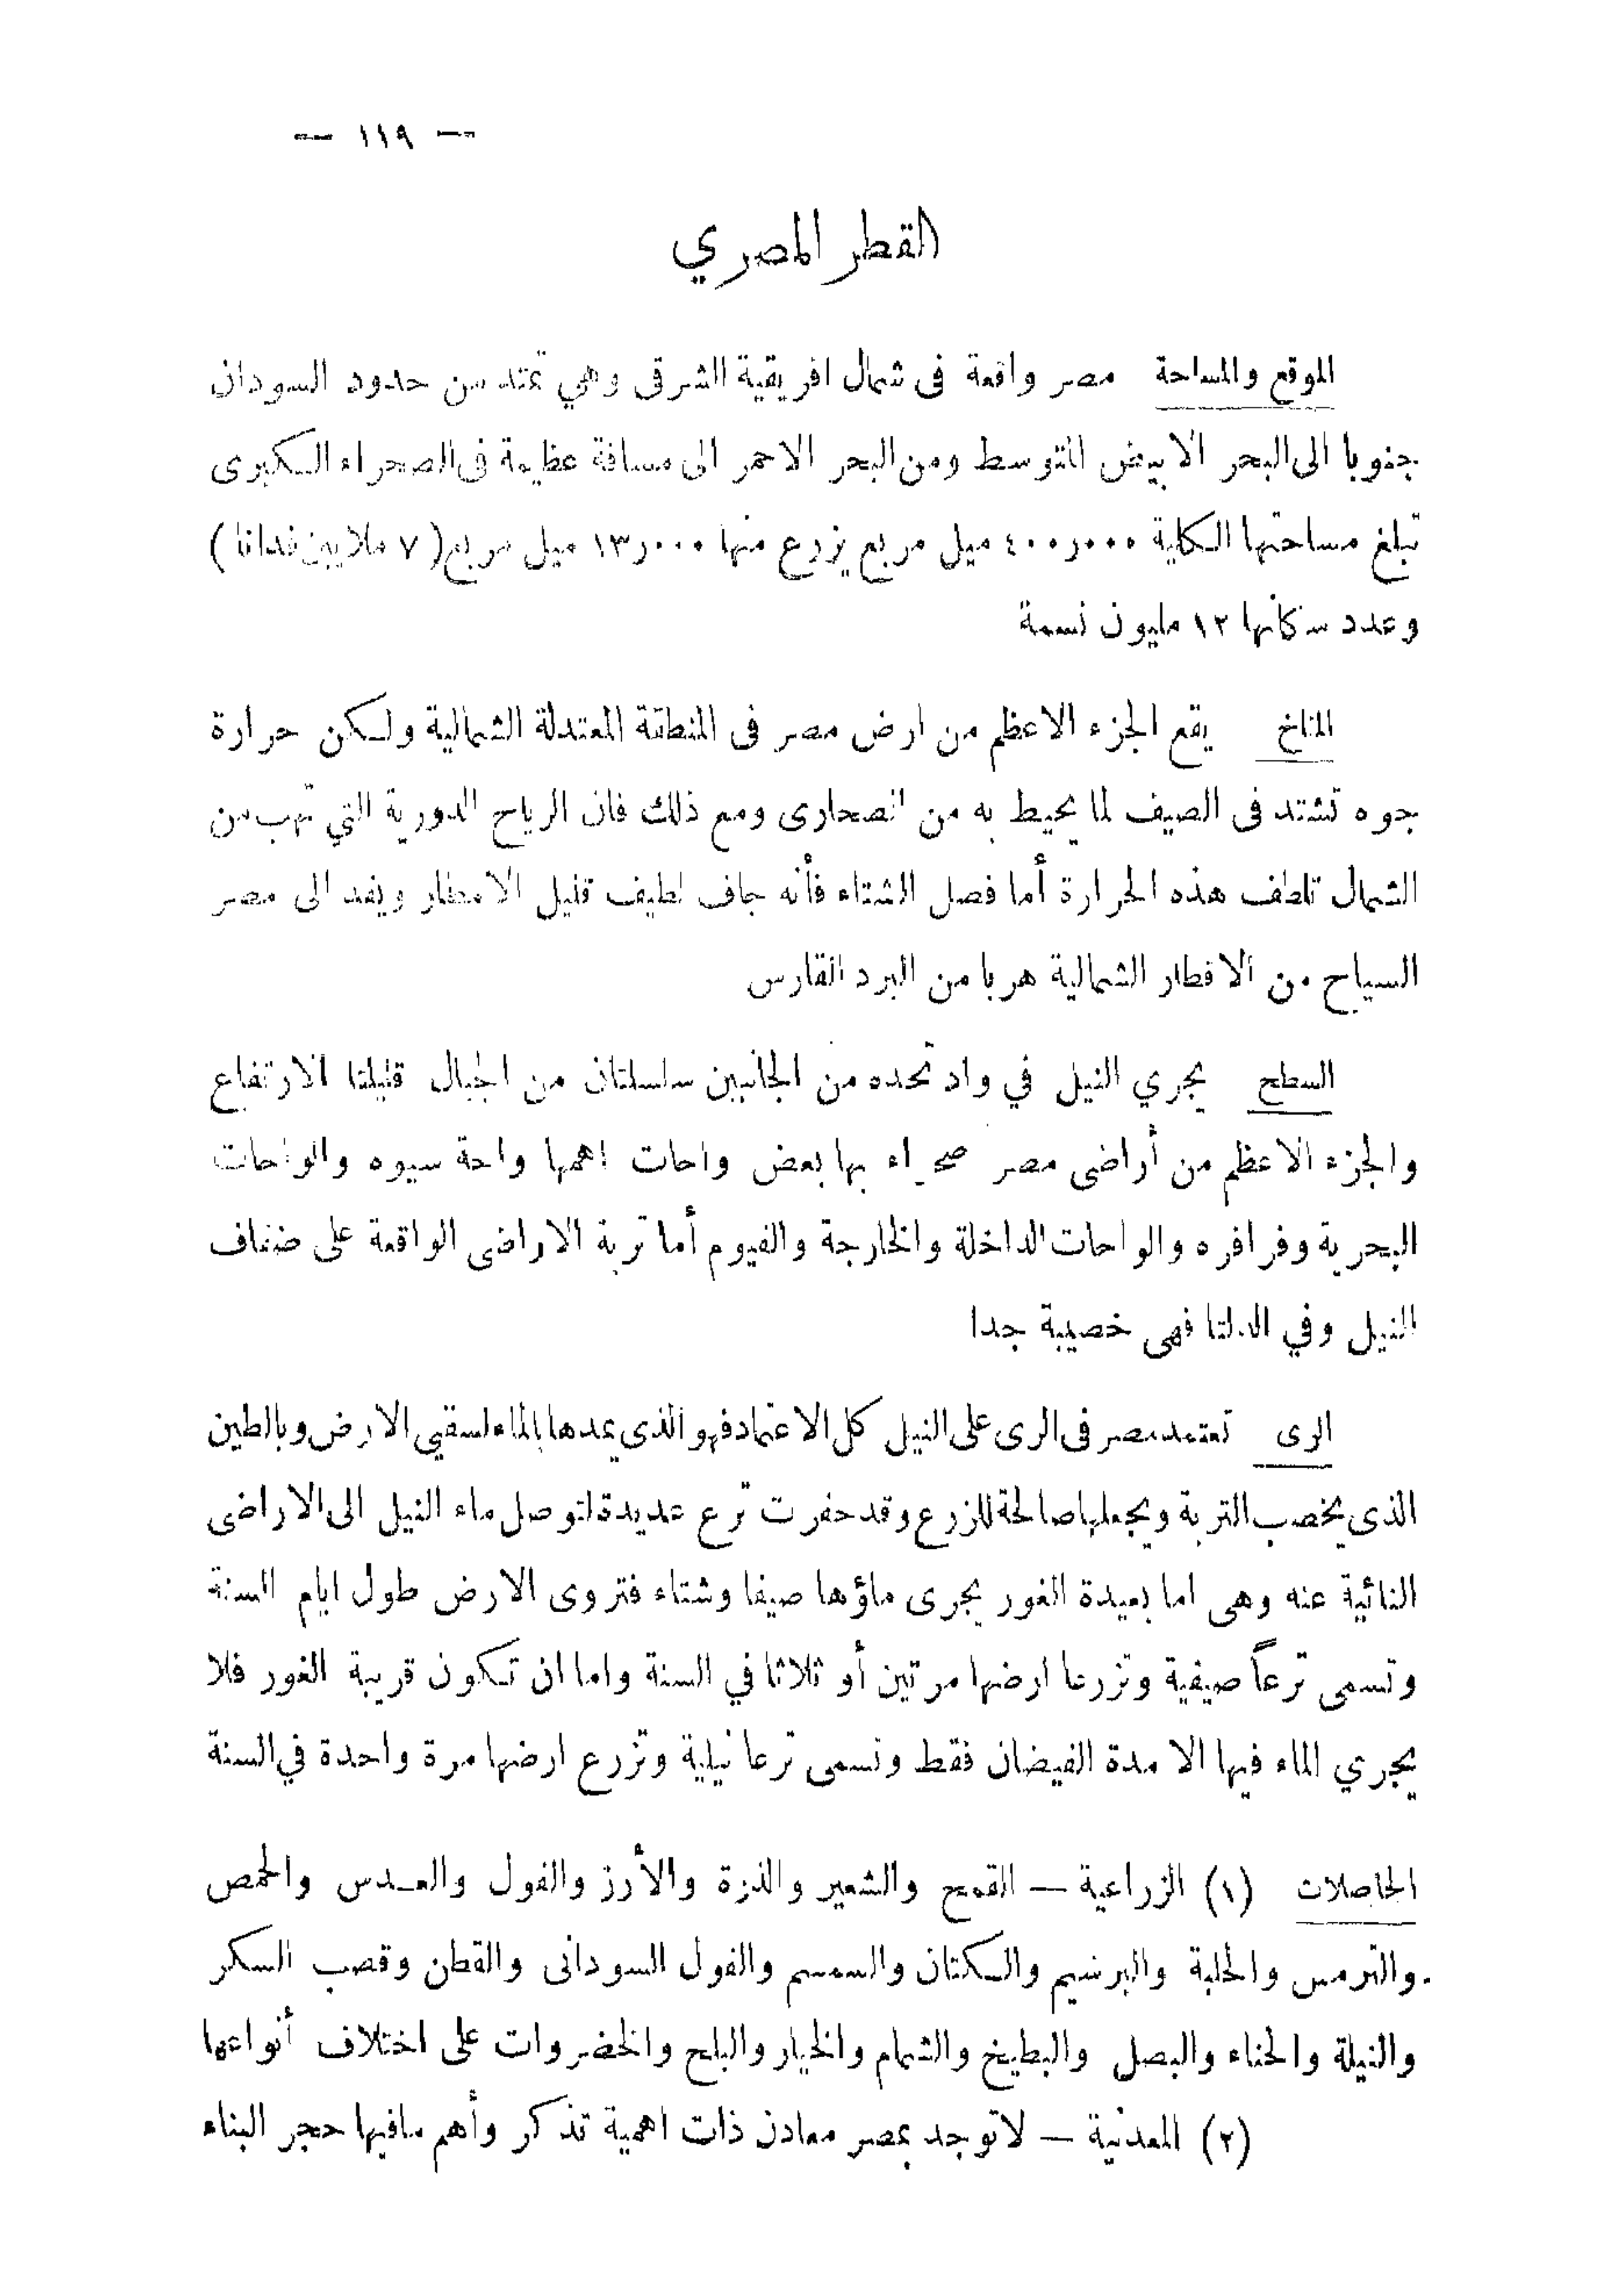 — ١١٩ —
القطر المصري
الموقع والمساحة مصر واقعة فى شمال افريقية الشرقى وهي تمتد من حدود السودان
جنوبا الى البحر الابيض المتوسط ومن البحر الاحمر الى مسافة عظيمة فى الصحراء الكبرى
تبلغ مساحتها الكلية ٤٠٠ر٠٠٠ ميل مربع يزرع منها ١٣ر٠٠٠ ميل مربع (٧ ملايين فدانا)
وعدد سكانها ١٢ مليون نسمة
المناخ يقع الجزء الاعظم من ارض مصر فى المنطقة المعتدلة الشمالية ولكن حرارة
جوه تشتد فى الصيف لما يحيط به من الصحارى ومع ذلك فان الرياح الدورية التي تهب من
الشمال تلطف هذه الحرارة أما فصل الشتاء فأنه جاف لطيف قليل الامطار ويفد الى مصر
السياح من الاقطار الشمالية هربا من البرد القارس
السطح يجري النيل في واد تحده من الجانبين سلسلتان من الجبال قليلتا الارتفاع
والجزء الاعظم من أراضى مصر صحراء بها بعض واحات اهمها واحة سيوه والواحات
البحرية وفرافره والواحات الداخلة والخارجة والفيوم أما تربة الاراضى الواقعة على ضفاف
النيل وفي الدلتا فهى خصيبة جدا
الرى تعتمد مصر فى الرى على النيل كل الاعتماد فهو الذى يمدها بالماء لسقي الارض وبالطين
الذى يخصب التربة ويجعلها صالحة للزرع وقد حفرت ترع عديدة لتوصل ماء النيل الى الاراضى
النائية عنه وهى اما بعيدة الغور يجرى ماؤها صيفا وشتاء فتروى الارض طول ايام السنة
وتسمى ترعاً صيفية وتزرعا ارضها مرتين أو ثلاثا في السنة واما ان تكون قريبة الغور فلا
يجري الماء فيها الا مدة الفيضان فقط وتسمى ترعا نيلية وتزرع ارضها مرة واحدة في السنة
الحاصلات (١) الزراعية — القمح والشعير والذرة والأرز والفول والعدس والحمص
والترمس والحلبة والبرسيم والكتان والسمسم والفول السودانى والقطن وقصب السكر
والنيلة والحناء والبصل والبطيخ والشمام والخيار والبلح والخضروات على اختلاف أنواعها
(٢) المعدنية — لا توجد بمصر معادن ذات اهمية تذكر وأهم مافيها حجر البناء